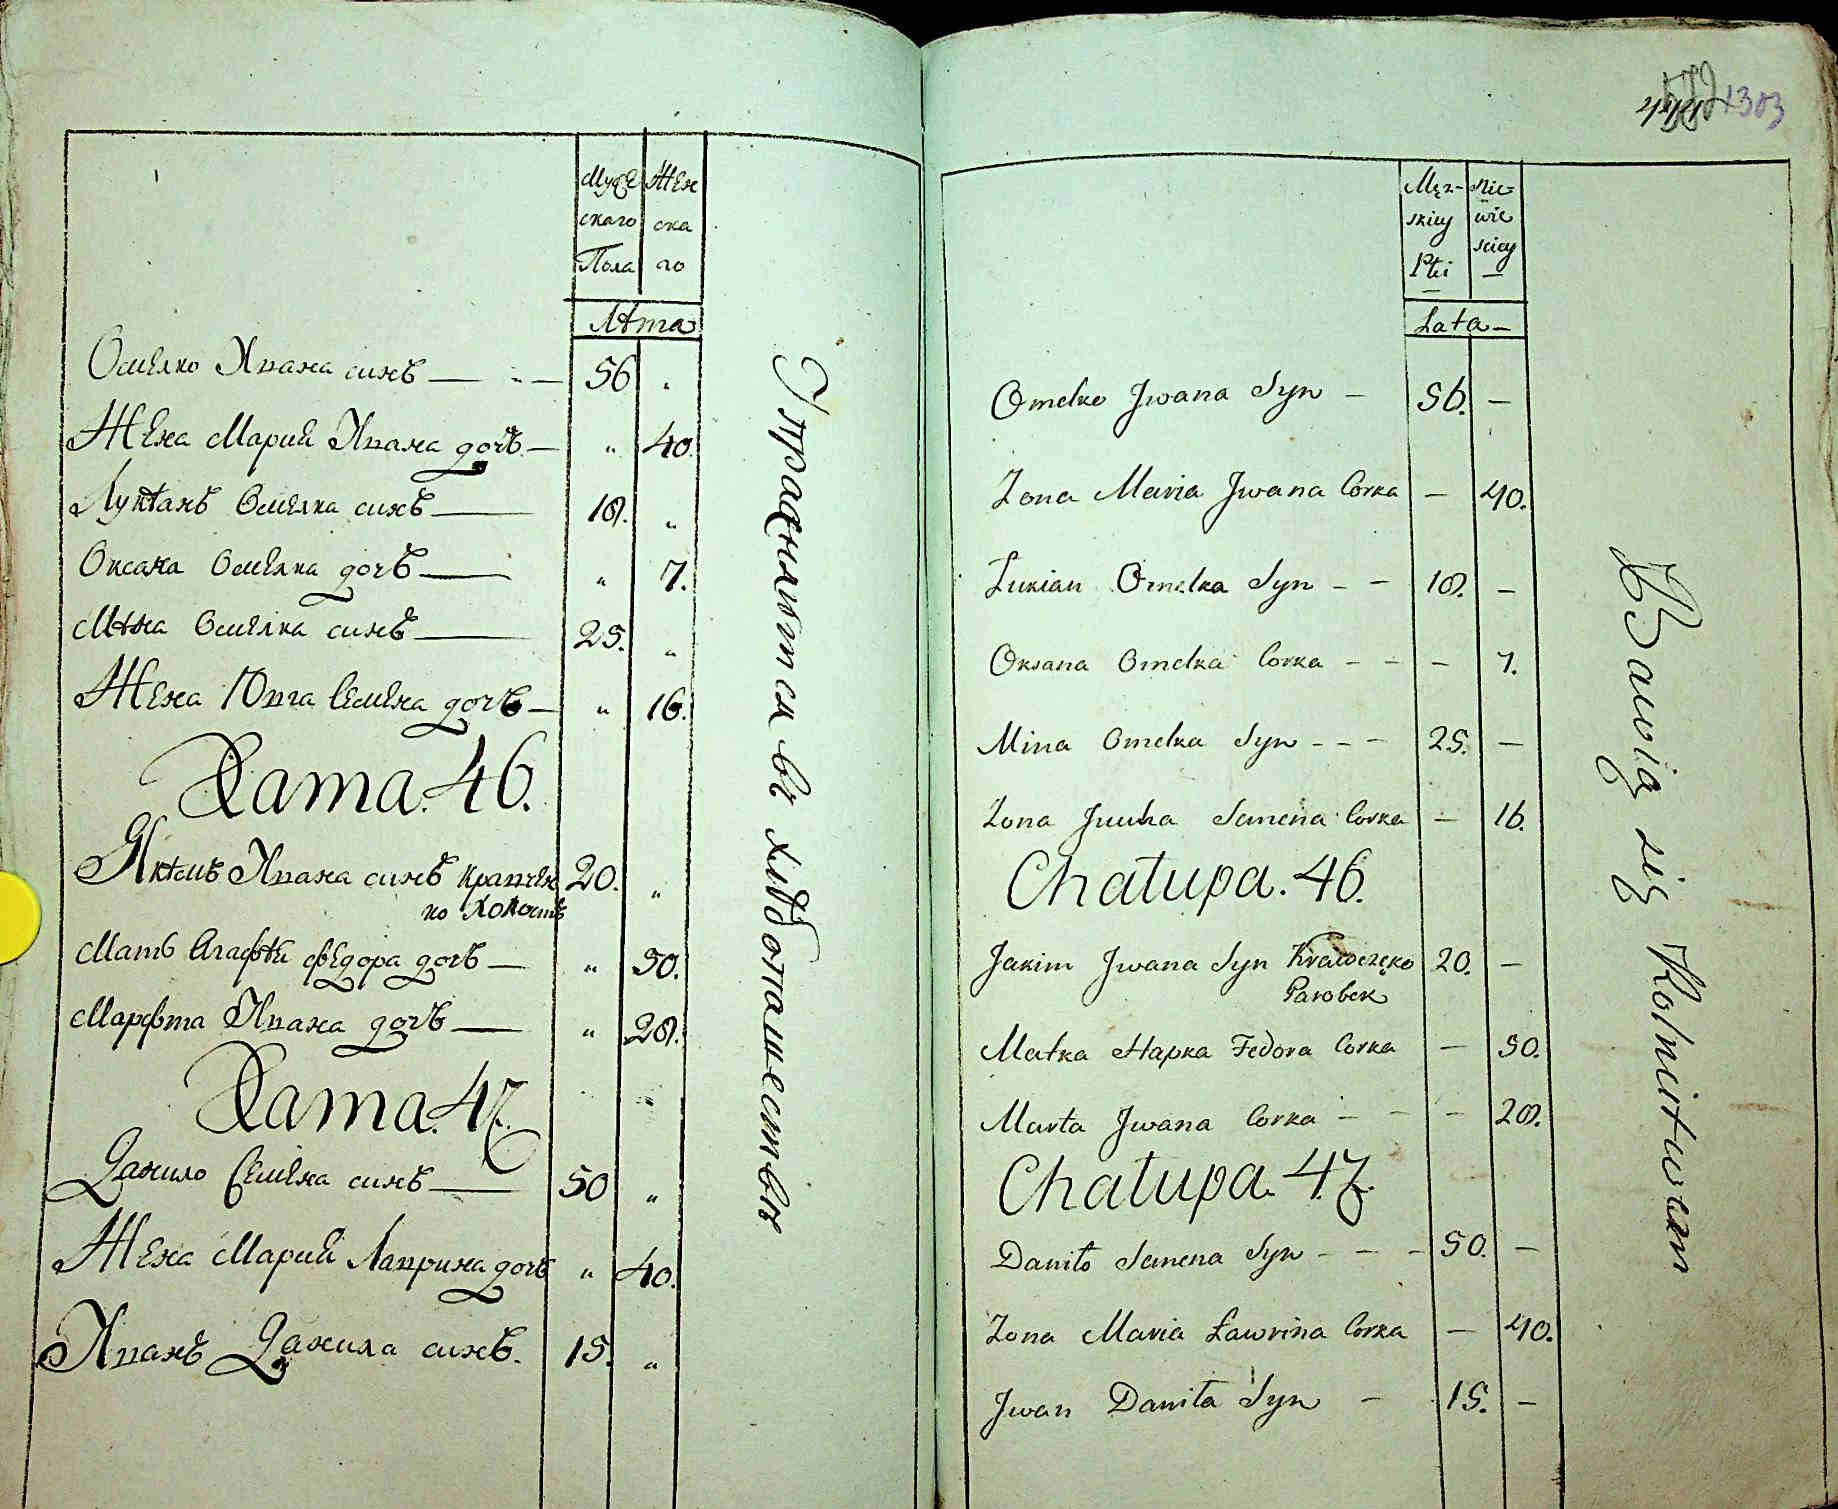 Муже
скаго
Пола
Жен
ска
го
Лѣта
Омелко Ивана синъ — 56 „
Жена Марий Ивана дочъ — „ 40.
Лукѣанъ Омелка синъ — 18. „
Оксана Омелка дочъ — „ 7.
Мѣна Омелка синъ — 25. „
Жена Ювга Семена дочъ — „ 16.
Хата. 46.
Якѣмъ Ивана синъ Кравчен 20. „
ко
Мать Агафѣй федора дочъ — „ 50.
Марфта Ивана дочъ — „ 28.
Хата. 47.
Данило Семена синъ — 50 „
Жена Марий Лаврина дочъ „ 40.
Иванъ Данила синъ. 15. „
Упражнятся въ хлѣбопашествѣ
1303
Męz-
skiey
Płci
Nie-
wie
sciey
Lata —
Omelko Jwana Syn — 56. —
Zona Maria Jwana Corka — 40.
Łukian Omelka Syn — — 18. —
Oksana Omelka Corka — — — 7.
Mina Omelka Syn — — — 25. —
Zona Juuha Semena Corka — 16.
Chatupa. 46.
Jakim Jwana Syn Krawczęko 20. —
Parobek
Matka Hapka Fedora Corka — 50.
Marta Jwana Corka — — — 28.
Chatupa. 47.
Daniło Semena Syn — — — 50. —
Zona Maria Ławrina Corka — 40.
Jwan Daniła Syn — 15. —
Bawią się Rolnictwem